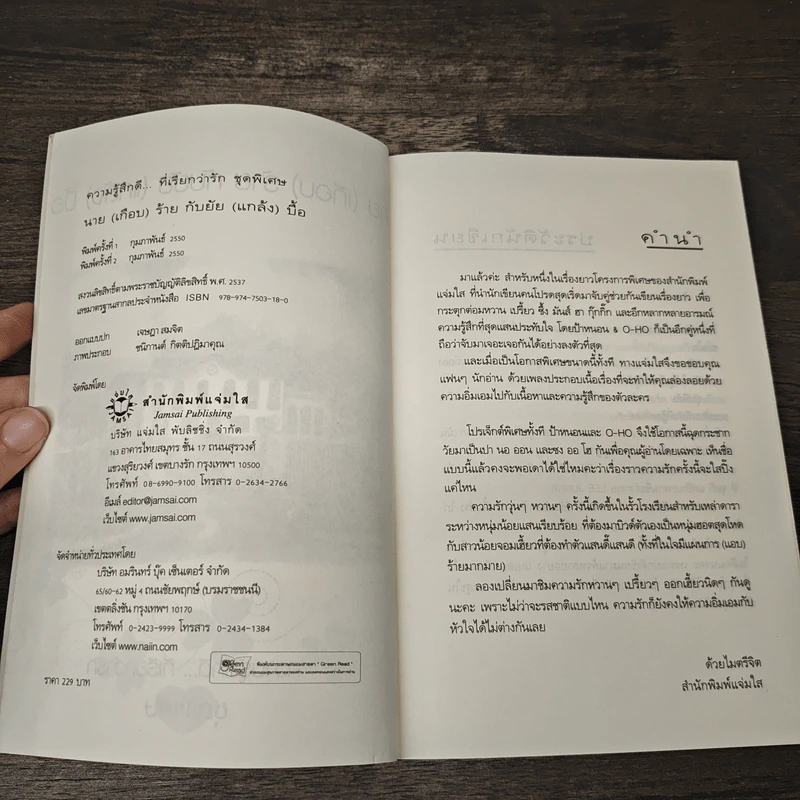 ความรู้สึกดี... ที่เรียกว่ารัก ชุดพิเศษ
นาย (เกือบ) ร้าย กับยัย (แกล้ง) บื้อ
พิมพ์ครั้งที่ 1 กุมภาพันธ์ 2550
พิมพ์ครั้งที่ 2 กุมภาพันธ์ 2550
สงวนลิขสิทธิ์ตามพระราชบัญญัติลิขสิทธิ์ พ.ศ. 2537
เลขมาตรฐานสากลประจำหนังสือ ISBN 978-974-7503-18-0
ออกแบบปก เจษฎา สมจิต
ภาพประกอบ ชนิกานต์ กิตติปฎิมาคุณ
จัดพิมพ์โดย
สำนักพิมพ์แจ่มใส
Jamsai Publishing
บริษัท แจ่มใส พับลิชชิ่ง จำกัด
163 อาคารไทยสมุทร ชั้น 17 ถนนสุรวงศ์
แขวงสุริยวงศ์ เขตบางรัก กรุงเทพฯ 10500
โทรศัพท์ 08-6990-9100 โทรสาร 0-2634-2766
อีเมล์ editor@jamsai.com
เว็บไซต์ www.jamsai.com
จัดจำหน่ายทั่วประเทศโดย
บริษัท อมรินทร์ บุ๊ค เซ็นเตอร์ จำกัด
65/60-62 หมู่ 4 ถนนชัยพฤกษ์ (บรมราชชนนี)
เขตตลิ่งชัน กรุงเทพฯ 10170
โทรศัพท์ 0-2423-9999 โทรสาร 0-2434-1384
เว็บไซต์ www.naiin.com
Green Read
พิมพ์บนกระดาษถนอมสายตา " Green Read "
ราคา 229 บาท
คำนำ
มาแล้วค่ะ สำหรับหนึ่งในเรื่องยาวโครงการพิเศษของสำนักพิมพ์
แจ่มใส ที่นำนักเขียนคนโปรดสุดเริ่ดมาจับคู่ช่วยกันเขียนเรื่องยาว เพื่อ
กระตุกต่อมหวาน เปรี้ยว ซึ้ง มันส์ ฮา กุ๊กกิ๊ก และอีกหลากหลายอารมณ์
ความรู้สึกที่สุดแสนประทับใจ โดยป้าหนอน & O-HO ก็เป็นอีกคู่หนึ่งที่
ถือว่าจับมาเจอะเจอกันได้อย่างลงตัวที่สุด
และเมื่อเป็นโอกาสพิเศษขนาดนี้ทั้งที ทางแจ่มใสจึงขอขอบคุณ
แฟนๆ นักอ่าน ด้วยเพลงประกอบเนื้อเรื่องที่จะทำให้คุณล่องลอยด้วย
ความอิ่มเอมไปกับเนื้อหาและความรู้สึกของตัวละคร
โปรเจ็กต์พิเศษทั้งที ป้าหนอนและ O-HO จึงใช้โอกาสนี้ฉุดกระชาก
วัยมาเป็นปา นอ ออน และซง ออ โฮ กันเพื่อคุณผู้อ่านโดยเฉพาะ เห็นชื่อ
แบบนี้แล้วคงจะพอเดาได้ใช่ไหมคะว่าเรื่องราวความรักครั้งนี้จะใสปิ๊ง
แค่ไหน
ความรักวุ่นๆ หวานๆ ครั้งนี้เกิดขึ้นในรั้วโรงเรียนสำหรับเหล่าดารา
ระหว่างหนุ่มน้อยแสนเรียบร้อย ที่ต้องมาบิวด์ตัวเองเป็นหนุ่มฮอตสุดโหด
กับสาวน้อยจอมเฮี้ยวที่ต้องทำตัวแสนดี๊แสนดี (ทั้งที่ในใจมีแผนการ (แอบ)
ร้ายมากมาย)
ลองเปลี่ยนมาชิมความรักหวานๆ เปรี้ยวๆ ออกเฮี้ยวนิดๆ กันดู
นะคะ เพราะไม่ว่าจะรสชาติแบบไหน ความรักก็ยังคงให้ความอิ่มเอมกับ
หัวใจได้ไม่ต่างกันเลย
ด้วยไมตรีจิต
สำนักพิมพ์แจ่มใส